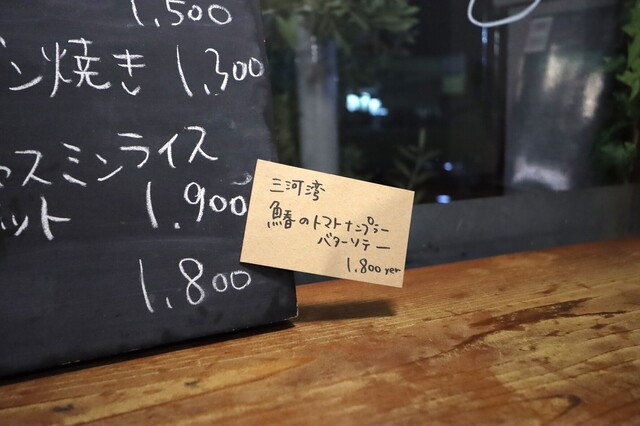 1,500
ン焼き 1,300
ャスミンライス
ット 1,900
1,800
三河湾
鰆のトマトナンプラー
バターソテー
1,800 yen